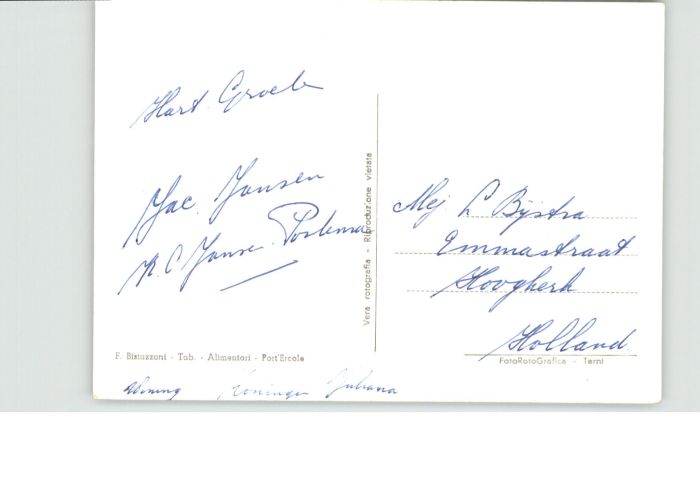 Hart. Groeten
Jac. Jansen
R. C. Jansen. Postema
Vera rotografia - Riproduzione vietata
Mej L Bijstra
Emmastraat
Hoogkerk
Holland
F. Bistazzoni - Tab. - Alimentari - Port'Ercole
FotoRotoGrafica - Terni
Woning Koningin Juliana